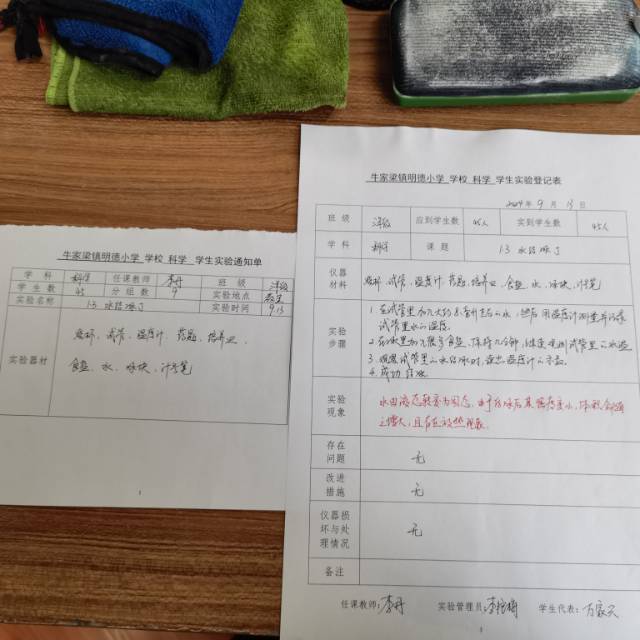 牛家梁镇明德小学 学校 科学 学生实验通知单
学 科 科学 任课教师 班 级
学 生 数 45 分 组 数 9 实验地点
实验名称 1.3 水结冰了 实验时间 9.13
实验器材
烧杯、试管、温度计、药匙、培养皿、
食盐、水、冰块、计时笔
牛家梁镇明德小学 学校 科学 学生实验登记表
2024年 9月 13日
班 级 应到学生数 45人 实到学生数 45人
学 科 科学 课 题 1.3 水结冰了
仪器材料 烧杯、试管、温度计、药匙、培养皿、食盐、水、冰块、
实验步骤
1. 在试管里加入大约 的水，然后用温度计测量并记录
试管里水的温度。
2. 在冰里加入 食盐，保持几分钟，继续观测试管里的水温
3. 观察试管里的水结冰时，读出温度计的示数
4.
实验现象
水由液态转变为固态，由于结冰后其密度变小，体积
增大，且存在放热现象。
存在问题 无
改进措施 无
仪器损坏与处理情况 无
备注
任课教师： 实验管理员： 学生代表：